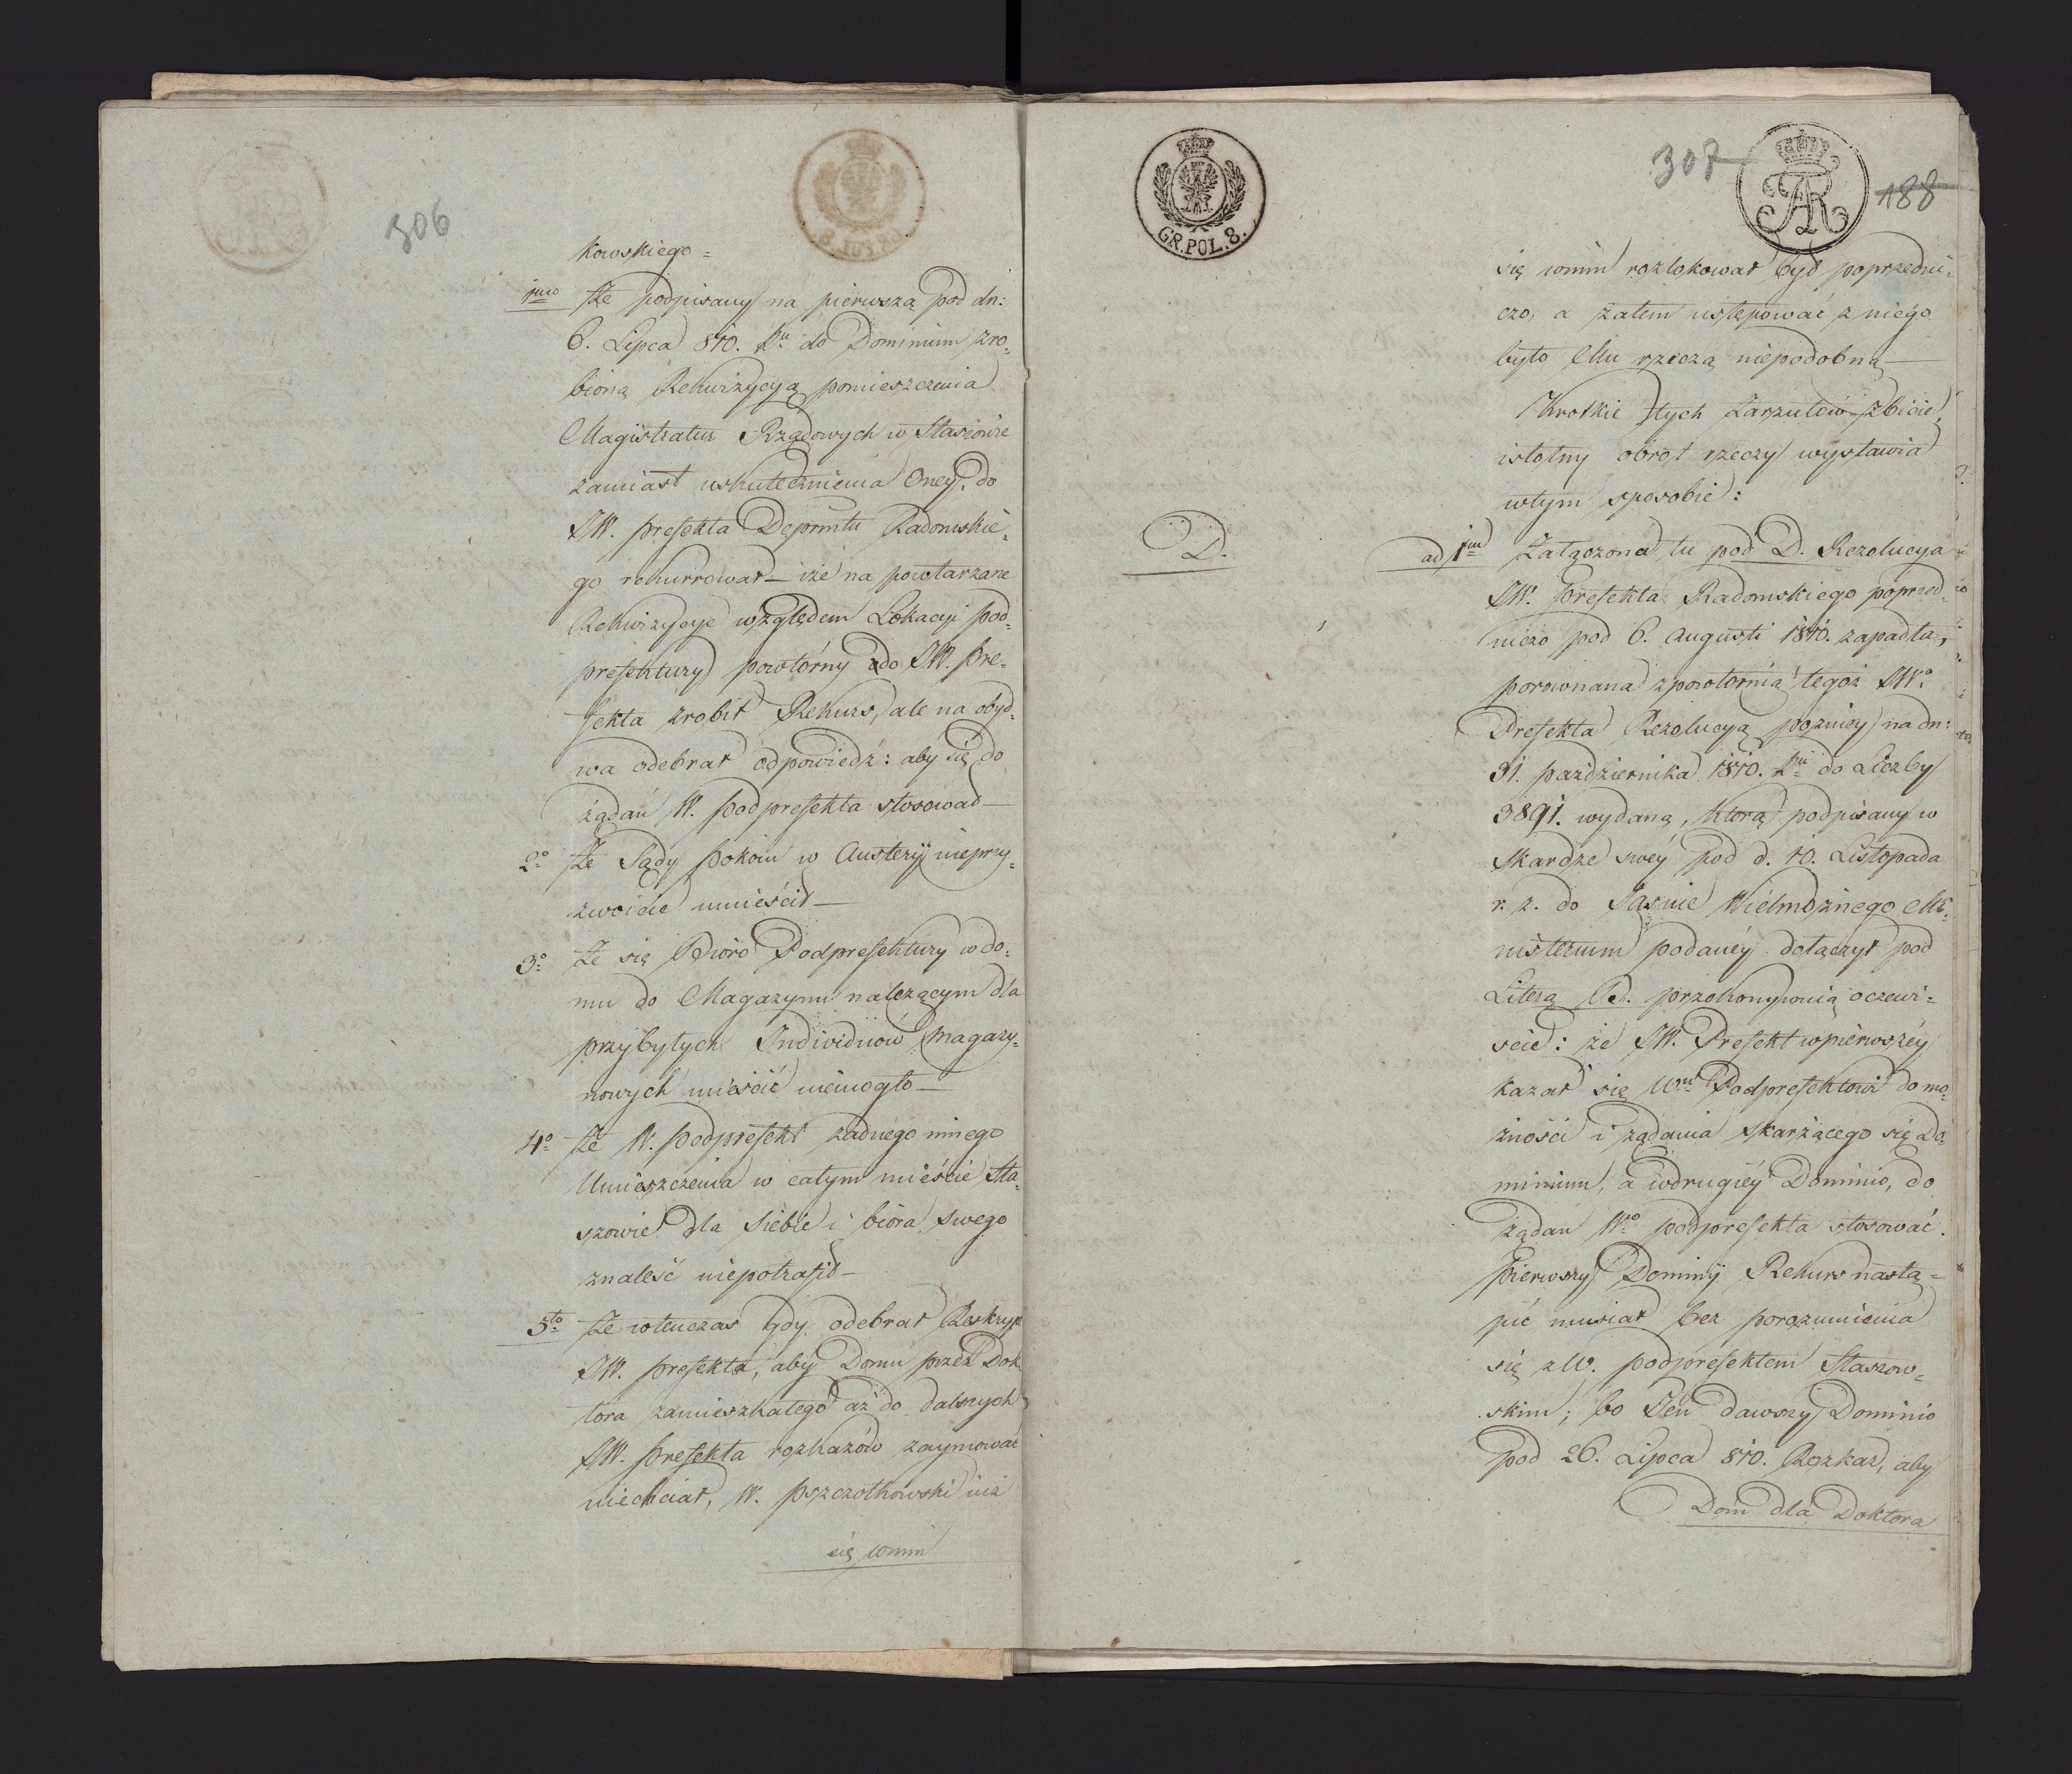 306
kowskiego =
1mo Że podpisany na pierwszą pod dn:
6. Lipca 810. do Dominium zro=
bioną Rekwizycyą pomieszczenia
Magistratur Rządowych w Stasiowie
zamiast uskutecznienia Oney. do
JW. prefekta Deprmtu Radomskie=
go rekurrował — iże na powtarzane
Rekwizycye względem Lokacyi pod=
prefektury powtórny do JW. Pre=
fekta zrobił Rekurs, ale na obyd=
wa odebrał odpowiedź: aby się do
żądań W. podprefekta stosował —
2o Że Sądy pokoiu w Austeryi nieprzy=
zwoicie umieścił —
3o Że się Bióro Podprefektury w do=
mu do Magazynu należącym dla
przybyłych Individuów Magazy=
nowych mieścić niemogło —
4o Że W. podprefekt żadnego innego
Umieszczenia w całym mieście Sta=
szowie dla siebie i bióra swego
znaleść niepotrafił —
5to Że wtenczas gdy odebrał Reskryp
JW. prefekta, aby Domu przez Dok
tora zamieszkałego aż do dalszych
JW. prefekta rozkazów zaymować
niechciał, W. pszczołkowski iuż
się wnim
GR.POL.8.
307
188
FAR
się wnim rozlokował był poprzedni=
czo, a zatem ustępować z niego
było Mu rzeczą niepodobną —
Krotkie tych Zarzutów zbicie,
istotny obrot rzeczy wystawia
wtym sposobie:
D.
ad 1um Załączona tu pod D. Rezolucya
JW. Prefekta Radomskiego poprzed=
niczo pod 6. Augusti 1810. zapadła,
porownana zpowtornią tegoż JWo
Prefekta Rezolucyą pozniey na dn:
31. października 1810. do Liczby
3891. wydaną, ktorą podpisany w
skardze swey pod d. 10. Listopada
r. z. do Jasnie Wielmożnego Mi=
nisterium podaney dołączył pod
Literą B. przekonywaią oczewi=
scie: że JW. Prefekt wpierwszéy
kazał się Wmu Podprefektowi do mo=
żności i żądania skarżącego się Do=
minium, a wdrugiéy Dominio, do
żądań Wo podprefekta stosować.
Pierwszy Dominii Rekurs nastą=
pić musiał bez porozumienia
się z W. podprefektem Staszow=
skim; bo Ten dawszy Dominio
pod 26. Lipca 810. Rozkaz, aby
Dom dla Doktora